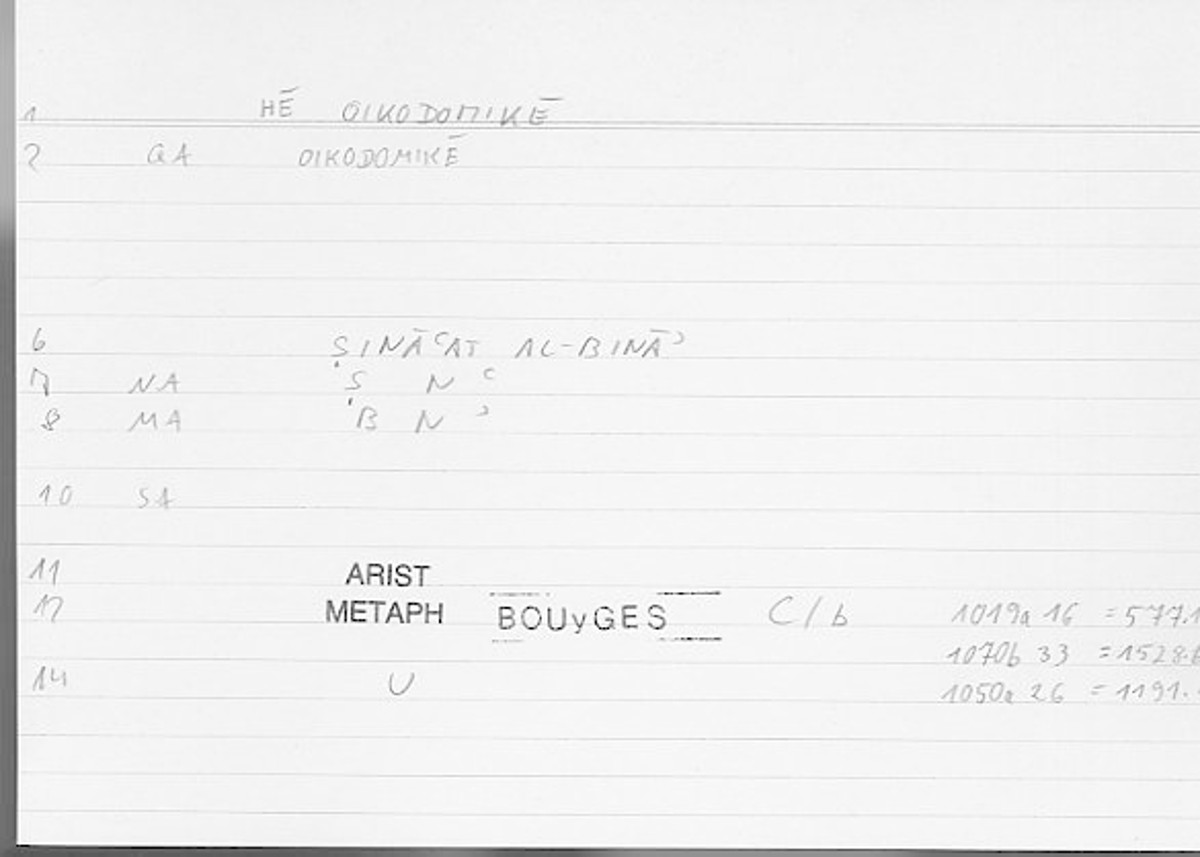 1 HĒ OIKODOMIKĒ
2 GA OIKODOMIKĒ
6 ṢINĀʿAT AL-BINĀʾ
7 NA Ṣ N ʿ
8 MA B N ʾ
10 SA
11 ARIST
12 METAPH BOUyGES C/b 1019a 16 = 577.1
1070b 33 = 1528.
14 U 1050a 26 = 1191.